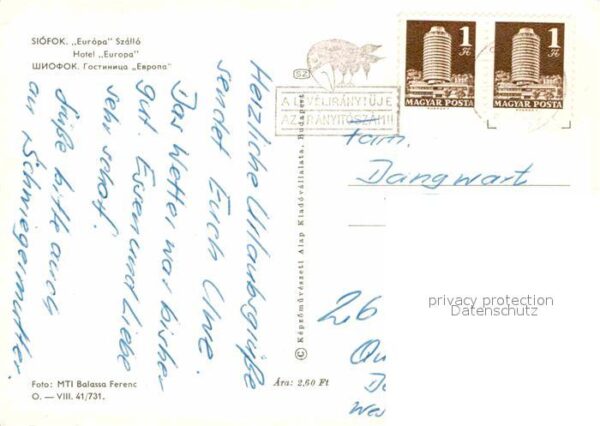 SIÓFOK. „Európa" Szálló
Hotel „Europa"
ШИОФОК. Гостиница „Европа"
Herzliche Urlaubsgrüße
sendet Euch
Das Wetter war bisher
gut. Essen und Liebe
sehr scharf.
Grüße bitte auch
an Schwiegermutter.
Foto: MTI Balassa Ferenc
O. — VIII. 41/731.
Ára: 2,60 Ft
© Képzőművészeti Alap Kiadóvállalata, Budapest
SZ
A LEVÉL IRÁNYTŰJE
AZ IRÁNYÍTÓSZÁM!!
1 Ft
MAGYAR POSTA
1 Ft
MAGYAR POSTA
Fam.
Dangwart
26
privacy protection
Datenschutz